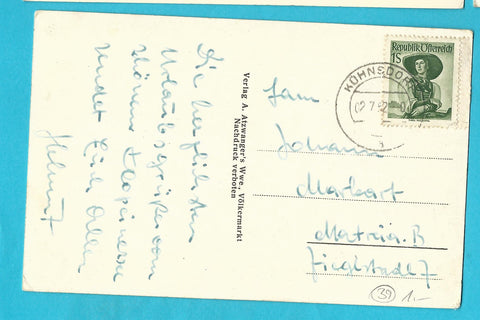 Die herzlichsten
Urlaubsgrüße vom
schönen Klopeinersee
sendet Euch Allen
Helmut
Verlag A. Atzwanger's Wwe, Völkermarkt
Nachdruck verboten
Republik Österreich
1S
KÜHNSDORF
Fam.
Johann
Markart
Matrei a. B
Zieglstadl 7
39
1.-